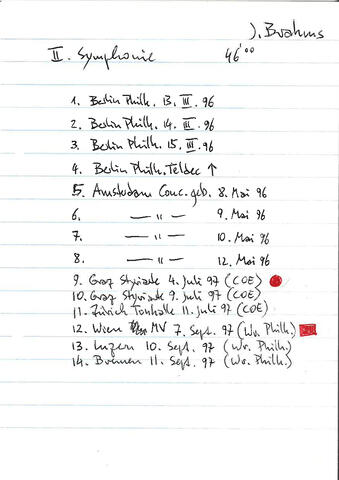 J. Brahms
II. Symphonie 46'00
1. Berlin Philh. 13. III. 96
2. Berlin Philh. 14. III. 96
3. Berlin Philh. 15. III. 96
4. Berlin Philh. Teldec ↑
5. Amsterdam Conc.geb. 8. Mai 96
6. —— " —— 9. Mai 96
7. —— " —— 10. Mai 96
8. —— " —— 12. Mai 96
9. Graz Styriade 4. Juli 97 (COE)
10. Graz Styriade 9. Juli 97 (COE)
11. Zürich Tonhalle 11. Juli 97 (COE)
12. Wien MV 7. Sept. 97 (Wr. Philh.)
13. Luzern 10. Sept. 97 (Wr. Philh.)
14. Bremen 11. Sept. 97 (Wr. Philh.)